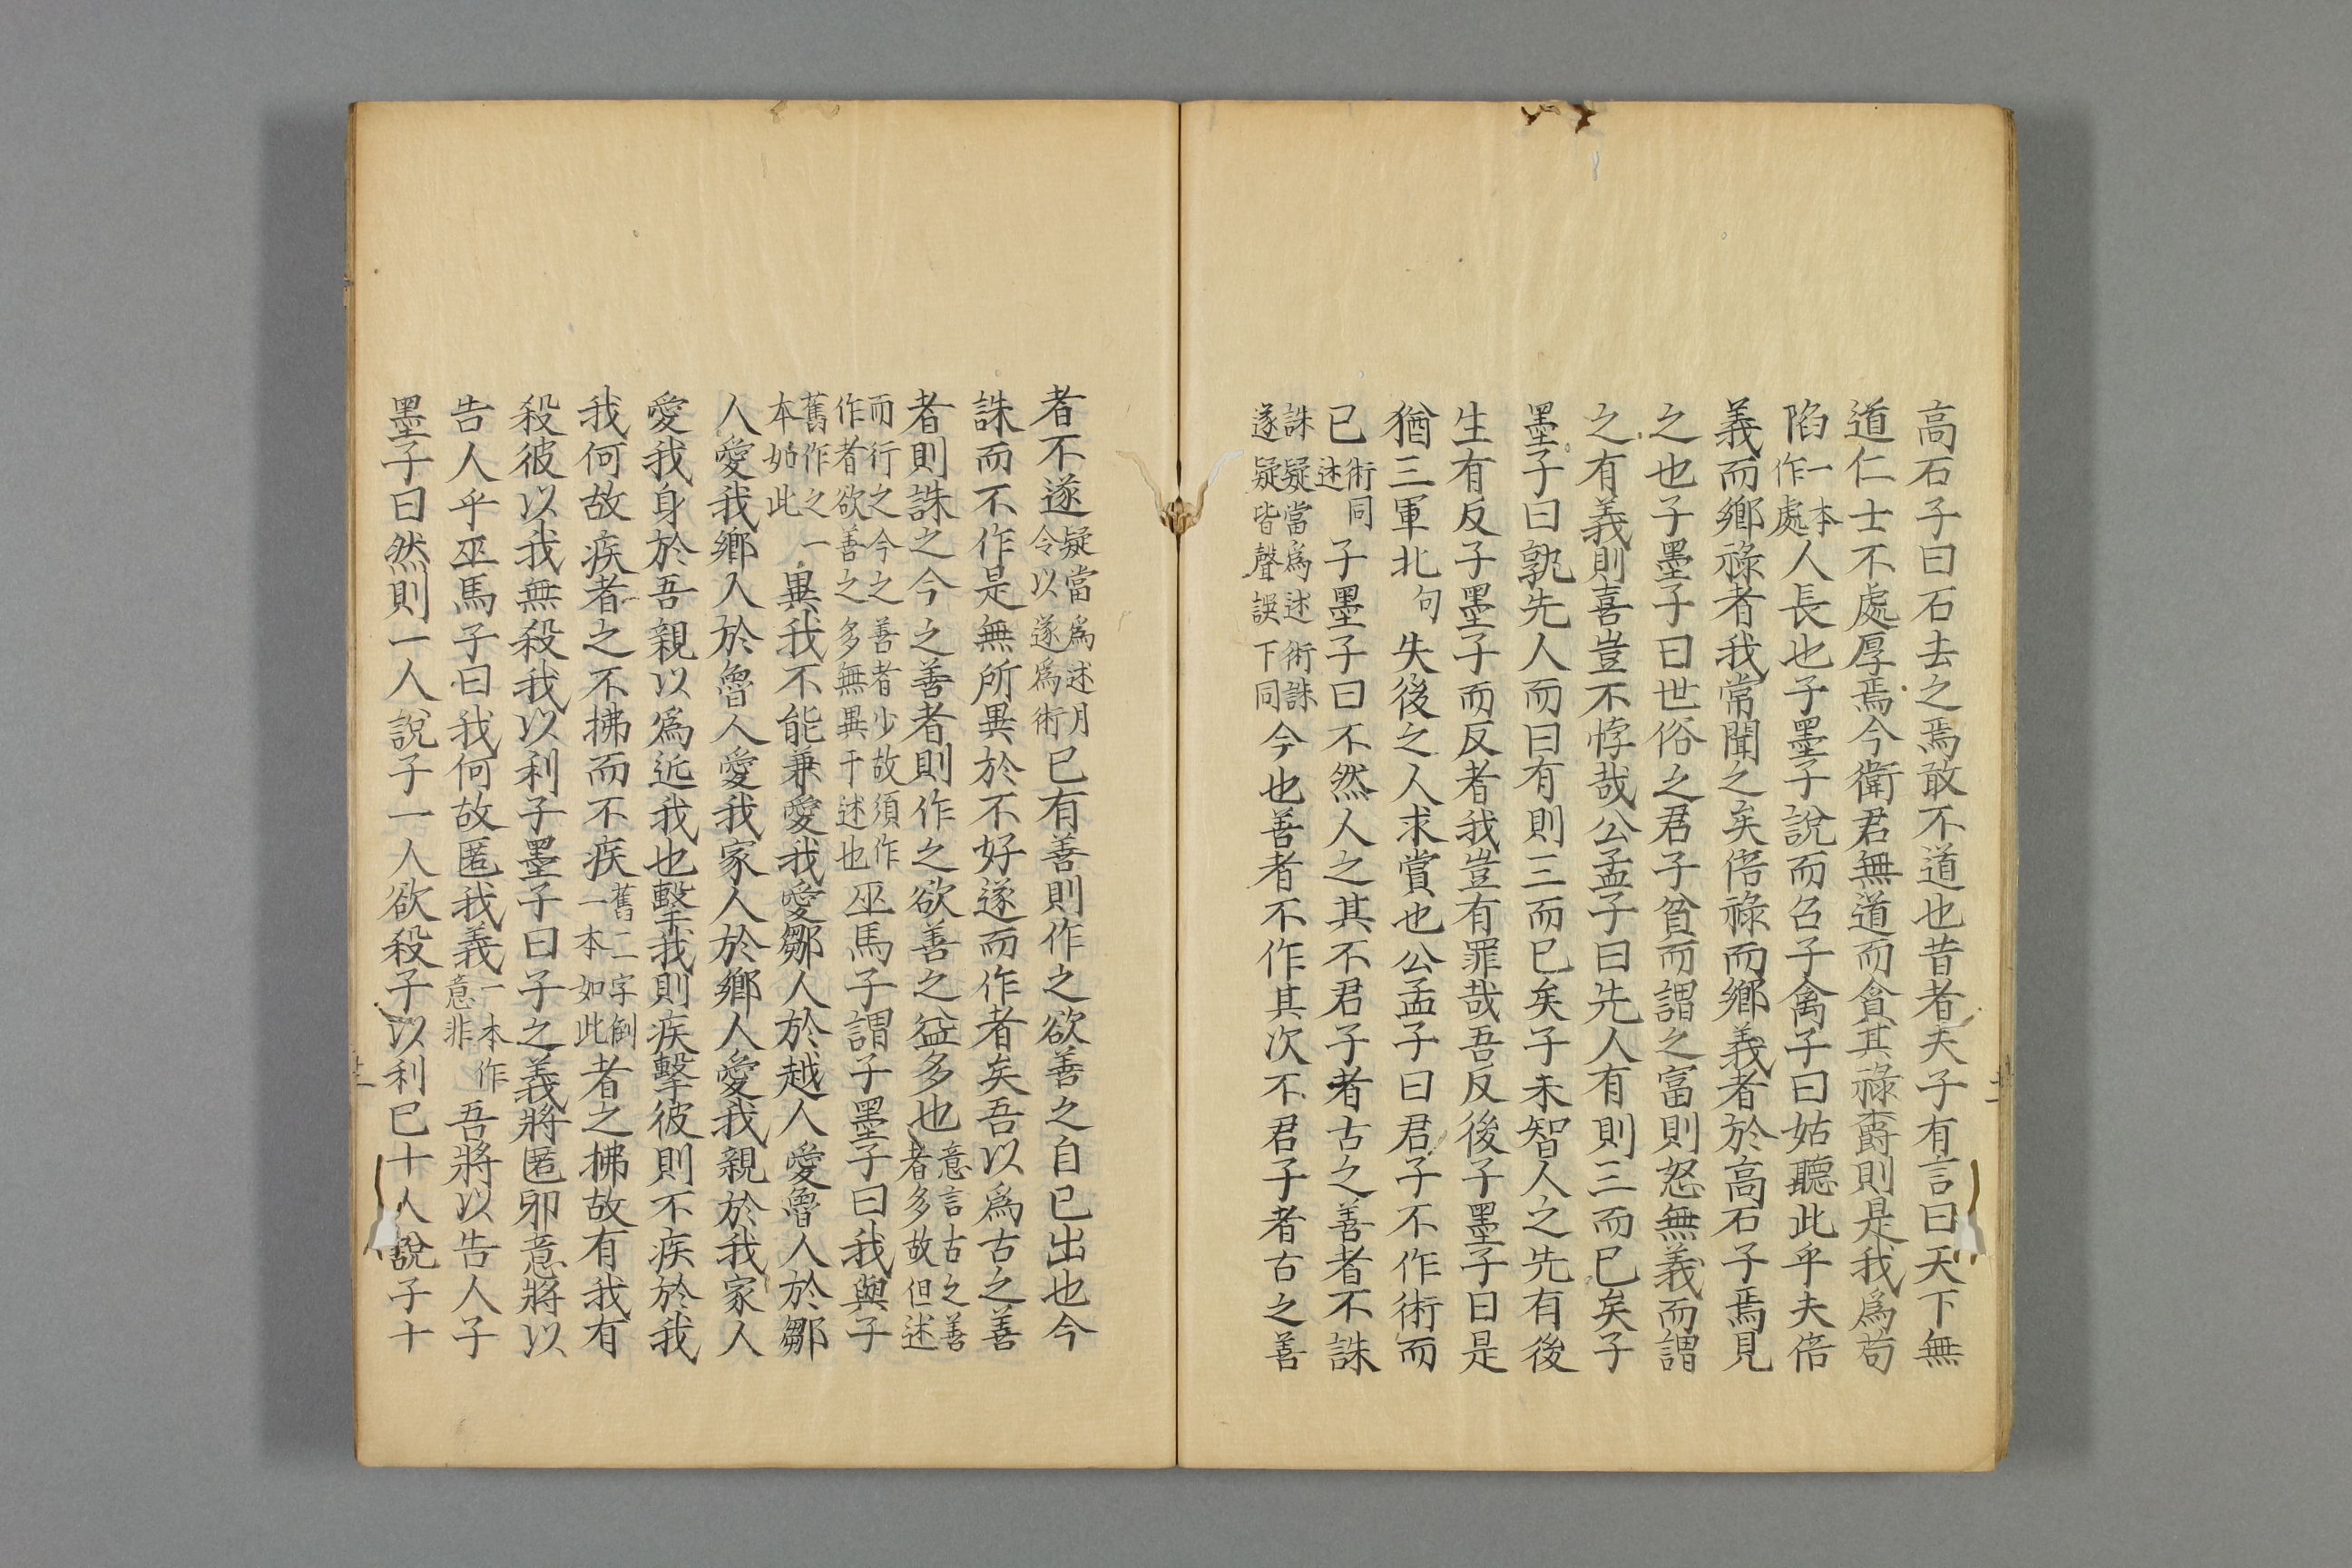 高石子曰石去之焉敢不道也昔者夫子有言曰天下無
道仁士不處厚焉今衛君無道而貪其祿爵則是我爲苟
陷一本作處人長也子墨子說而召子禽子曰姑聽此乎夫倍
義而鄉祿者我常聞之矣倍祿而鄉義者於高石子焉見
之也子墨子曰世俗之君子貧而謂之富則怒無義而謂
之有義則喜豈不悖哉公孟子曰先人有則三而已矣子
墨子曰孰先人而曰有則三而已矣子未智人之先有後
生有反子墨子而反者我豈有罪哉吾反後子墨子曰是
猶三軍北句失後之人求賞也公孟子曰君子不作術而
已術同述子墨子曰不然人之其不君子者古之善者不誅
誅疑當爲述術誅遂疑皆聲誤下同今也善者不作其次不君子者古之善
者不遂疑當爲述月令以遂爲術已有善則作之欲善之自已出也今
誅而不作是無所異於不好遂而作者矣吾以爲古之善
者則誅之今之善者則作之欲善之益多也意言古之善者多故但述
而行之今之善者少故須作作者欲善之多無異于述也巫馬子謂子墨子曰我與子
舊作之一本如此異我不能兼愛我愛鄒人於越人愛魯人於鄒
人愛我鄉人於魯人愛我家人於鄉人愛我親於我家人
愛我身於吾親以爲近我也擊我則疾擊彼則不疾於我
我何故疾者之不拂而不疾舊二字倒一本如此者之拂故有我有
殺彼以我無殺我以利子墨子曰子之義將匿卯意將以
告人乎巫馬子曰我何故匿我義一本作意非吾將以告人子
墨子曰然則一人說子一人欲殺子以利已十人說子十